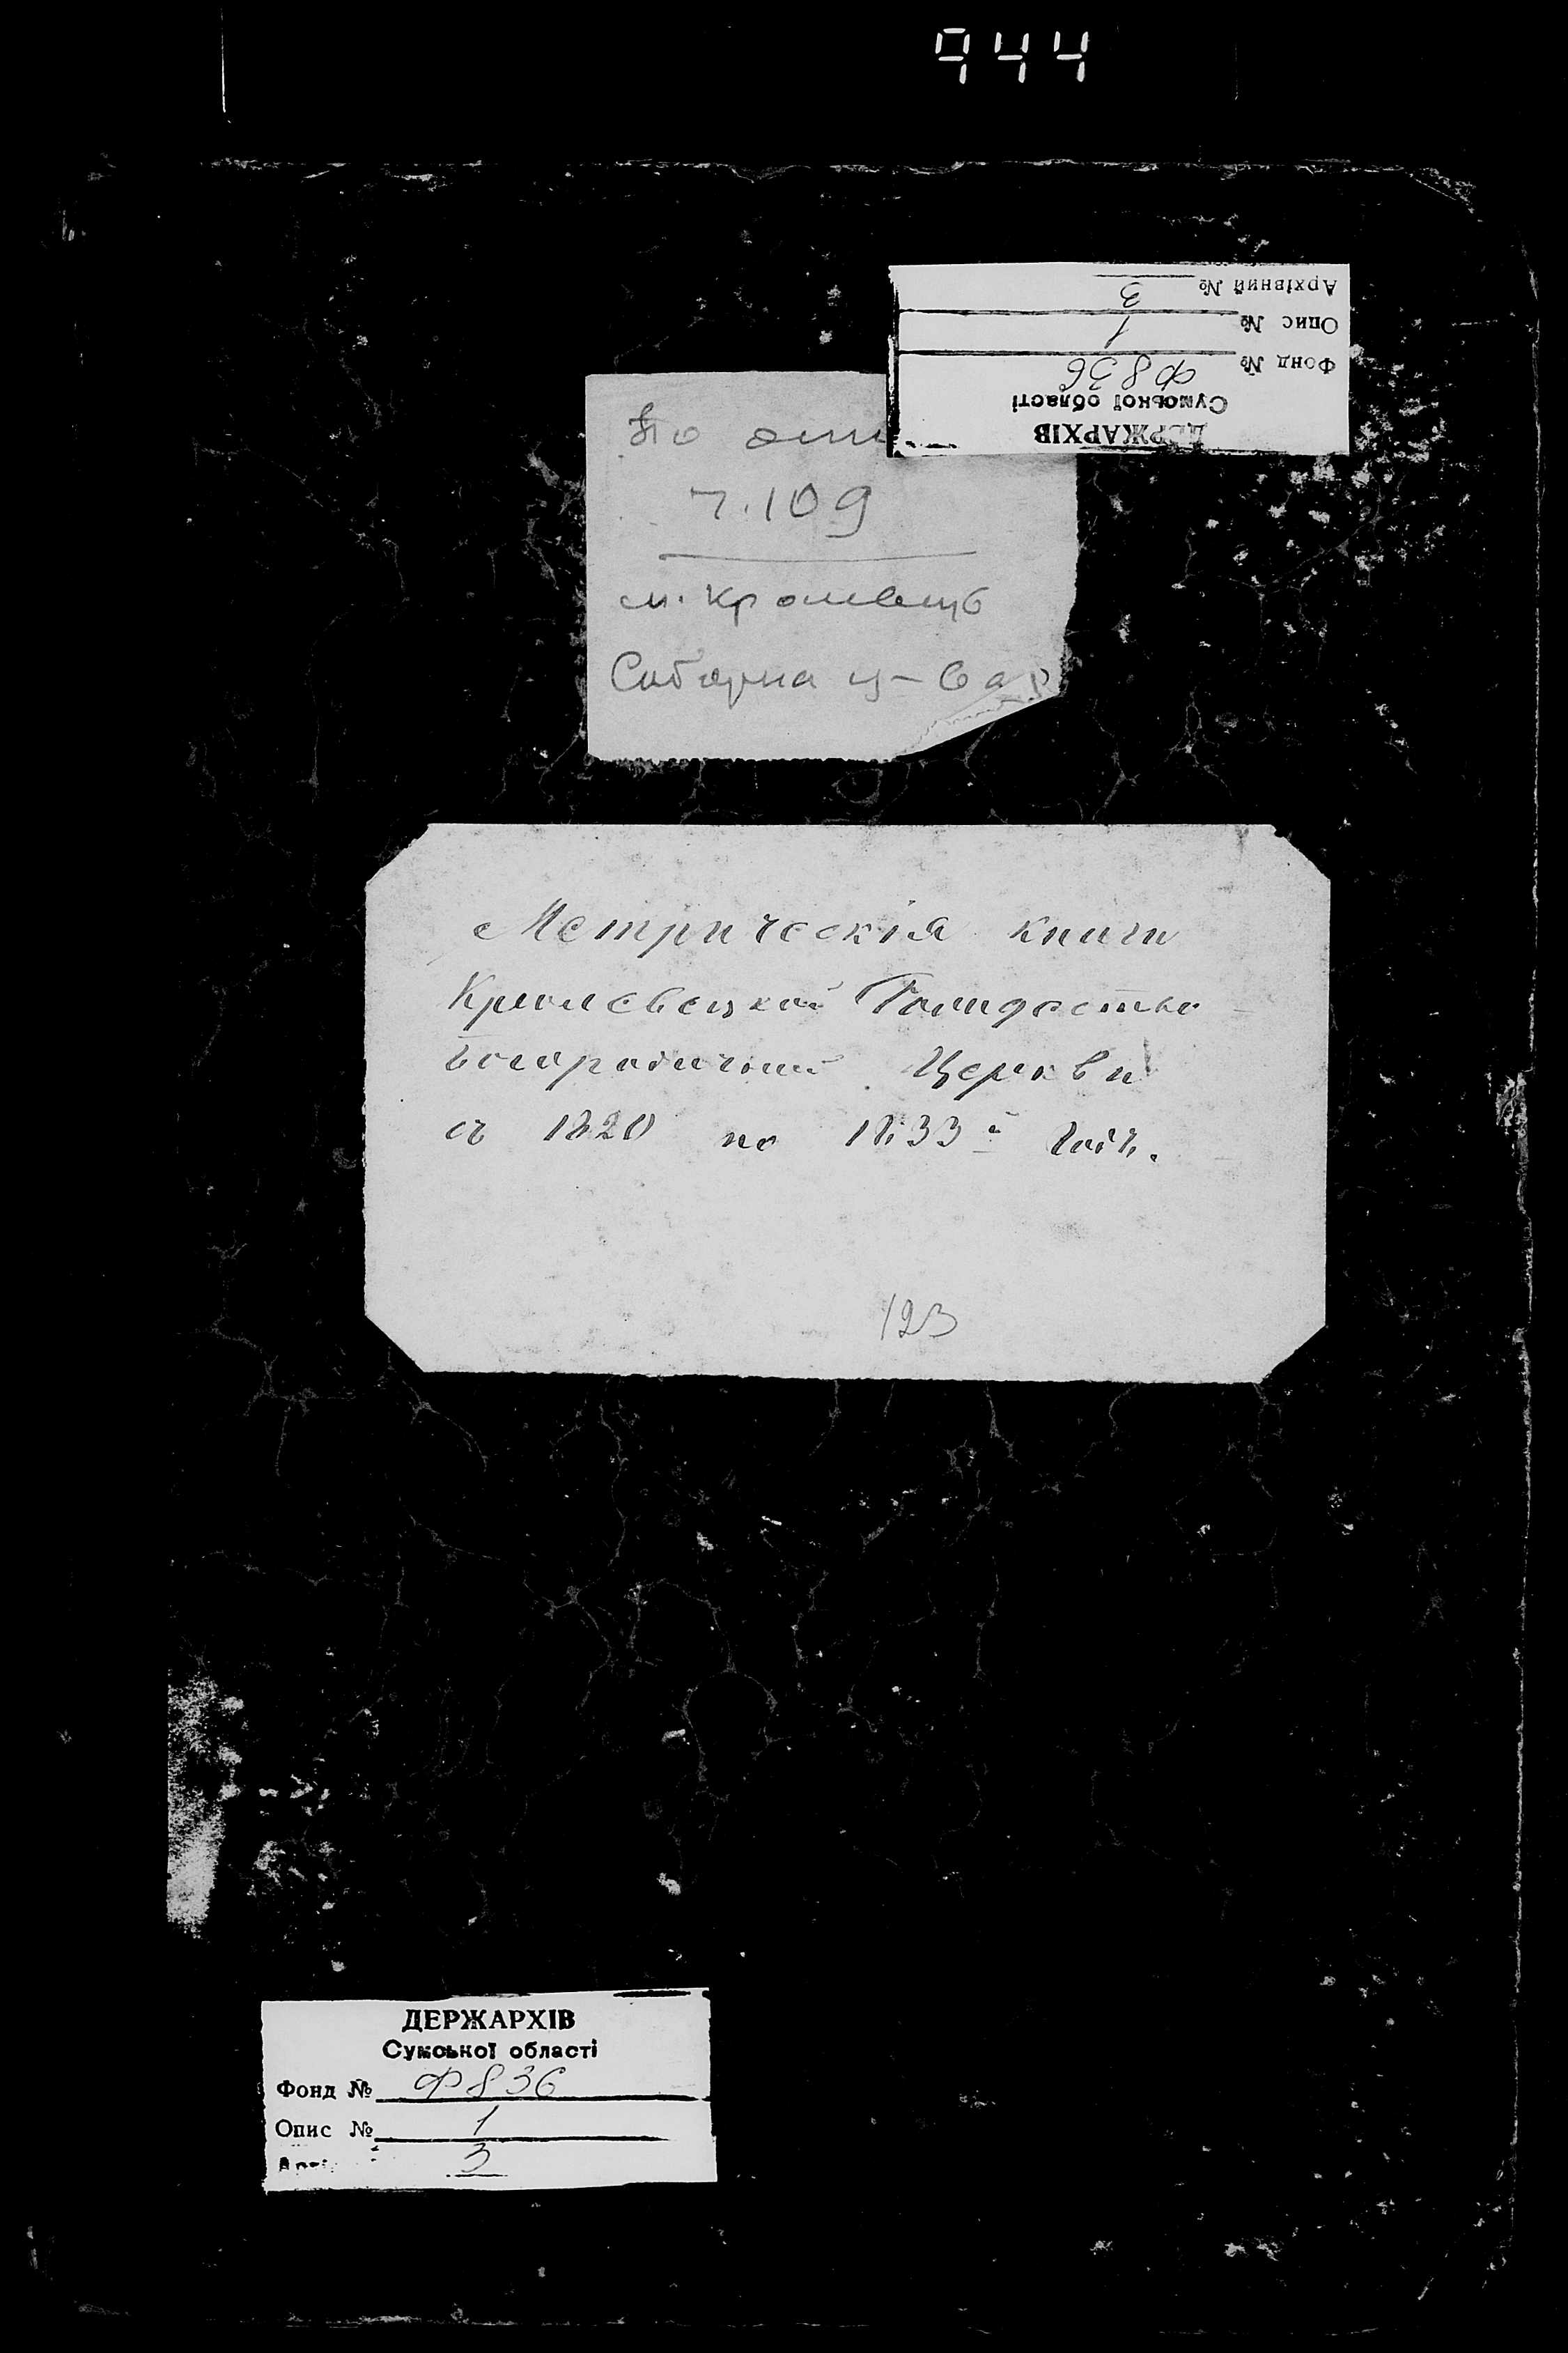 944
Архівний № 3
Опис № 1
Фонд № Ф836
Сумської області
ДЕРЖАРХІВ
По опи
ч.109
м. Кролевць
Соборна ц-ва
Метрическія книги
Кролевецкой Рождество-
Богородичной Церкви
съ 1820 по 1833й годъ.
123
ДЕРЖАРХІВ
Сумської області
Фонд № Ф836
Опис № 1
3